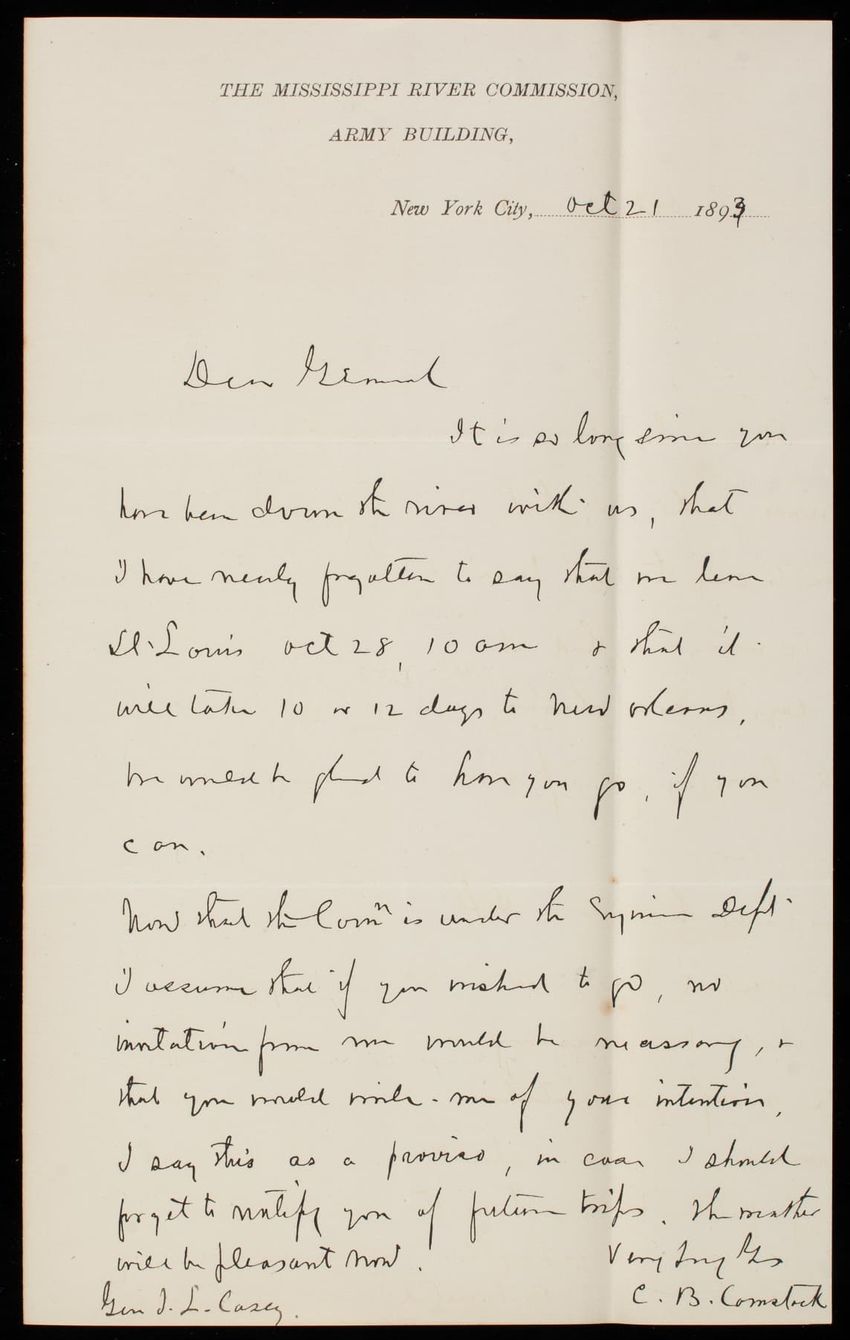 THE MISSISSIPPI RIVER COMMISSION,
ARMY BUILDING,
New York City, Oct 21 1893
Dear General
It is so long since you
have been down the river with us, that
I have nearly forgotten to say that we leave
St. Louis Oct 28, 10 am & that it
will take 10 or 12 days to New Orleans,
We would be glad to have you go, if you
can.
Now that the Comn is under the Engineer Dept
I assume that if you wished to go, no
invitation from me would be necessary, &
that you would write me of your intention,
I say this as a proviso, in case I should
forget to notify you of future trips. The weather
will be pleasant now.
Very Truly Yrs
C. B. Comstock
Gen T. L. Casey.